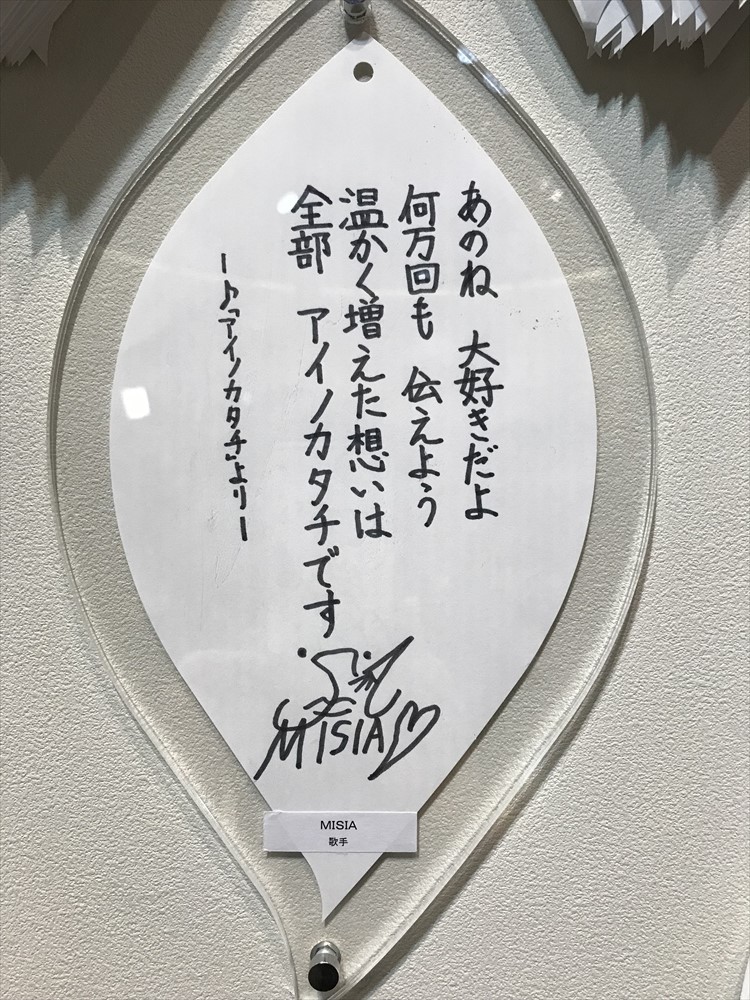 あのね 大好きだよ
何万回も 伝えよう
温かく増えた想いは
全部 アイノカタチです
ー♪「アイノカタチ」よりー
MISIA
MISIA
歌手